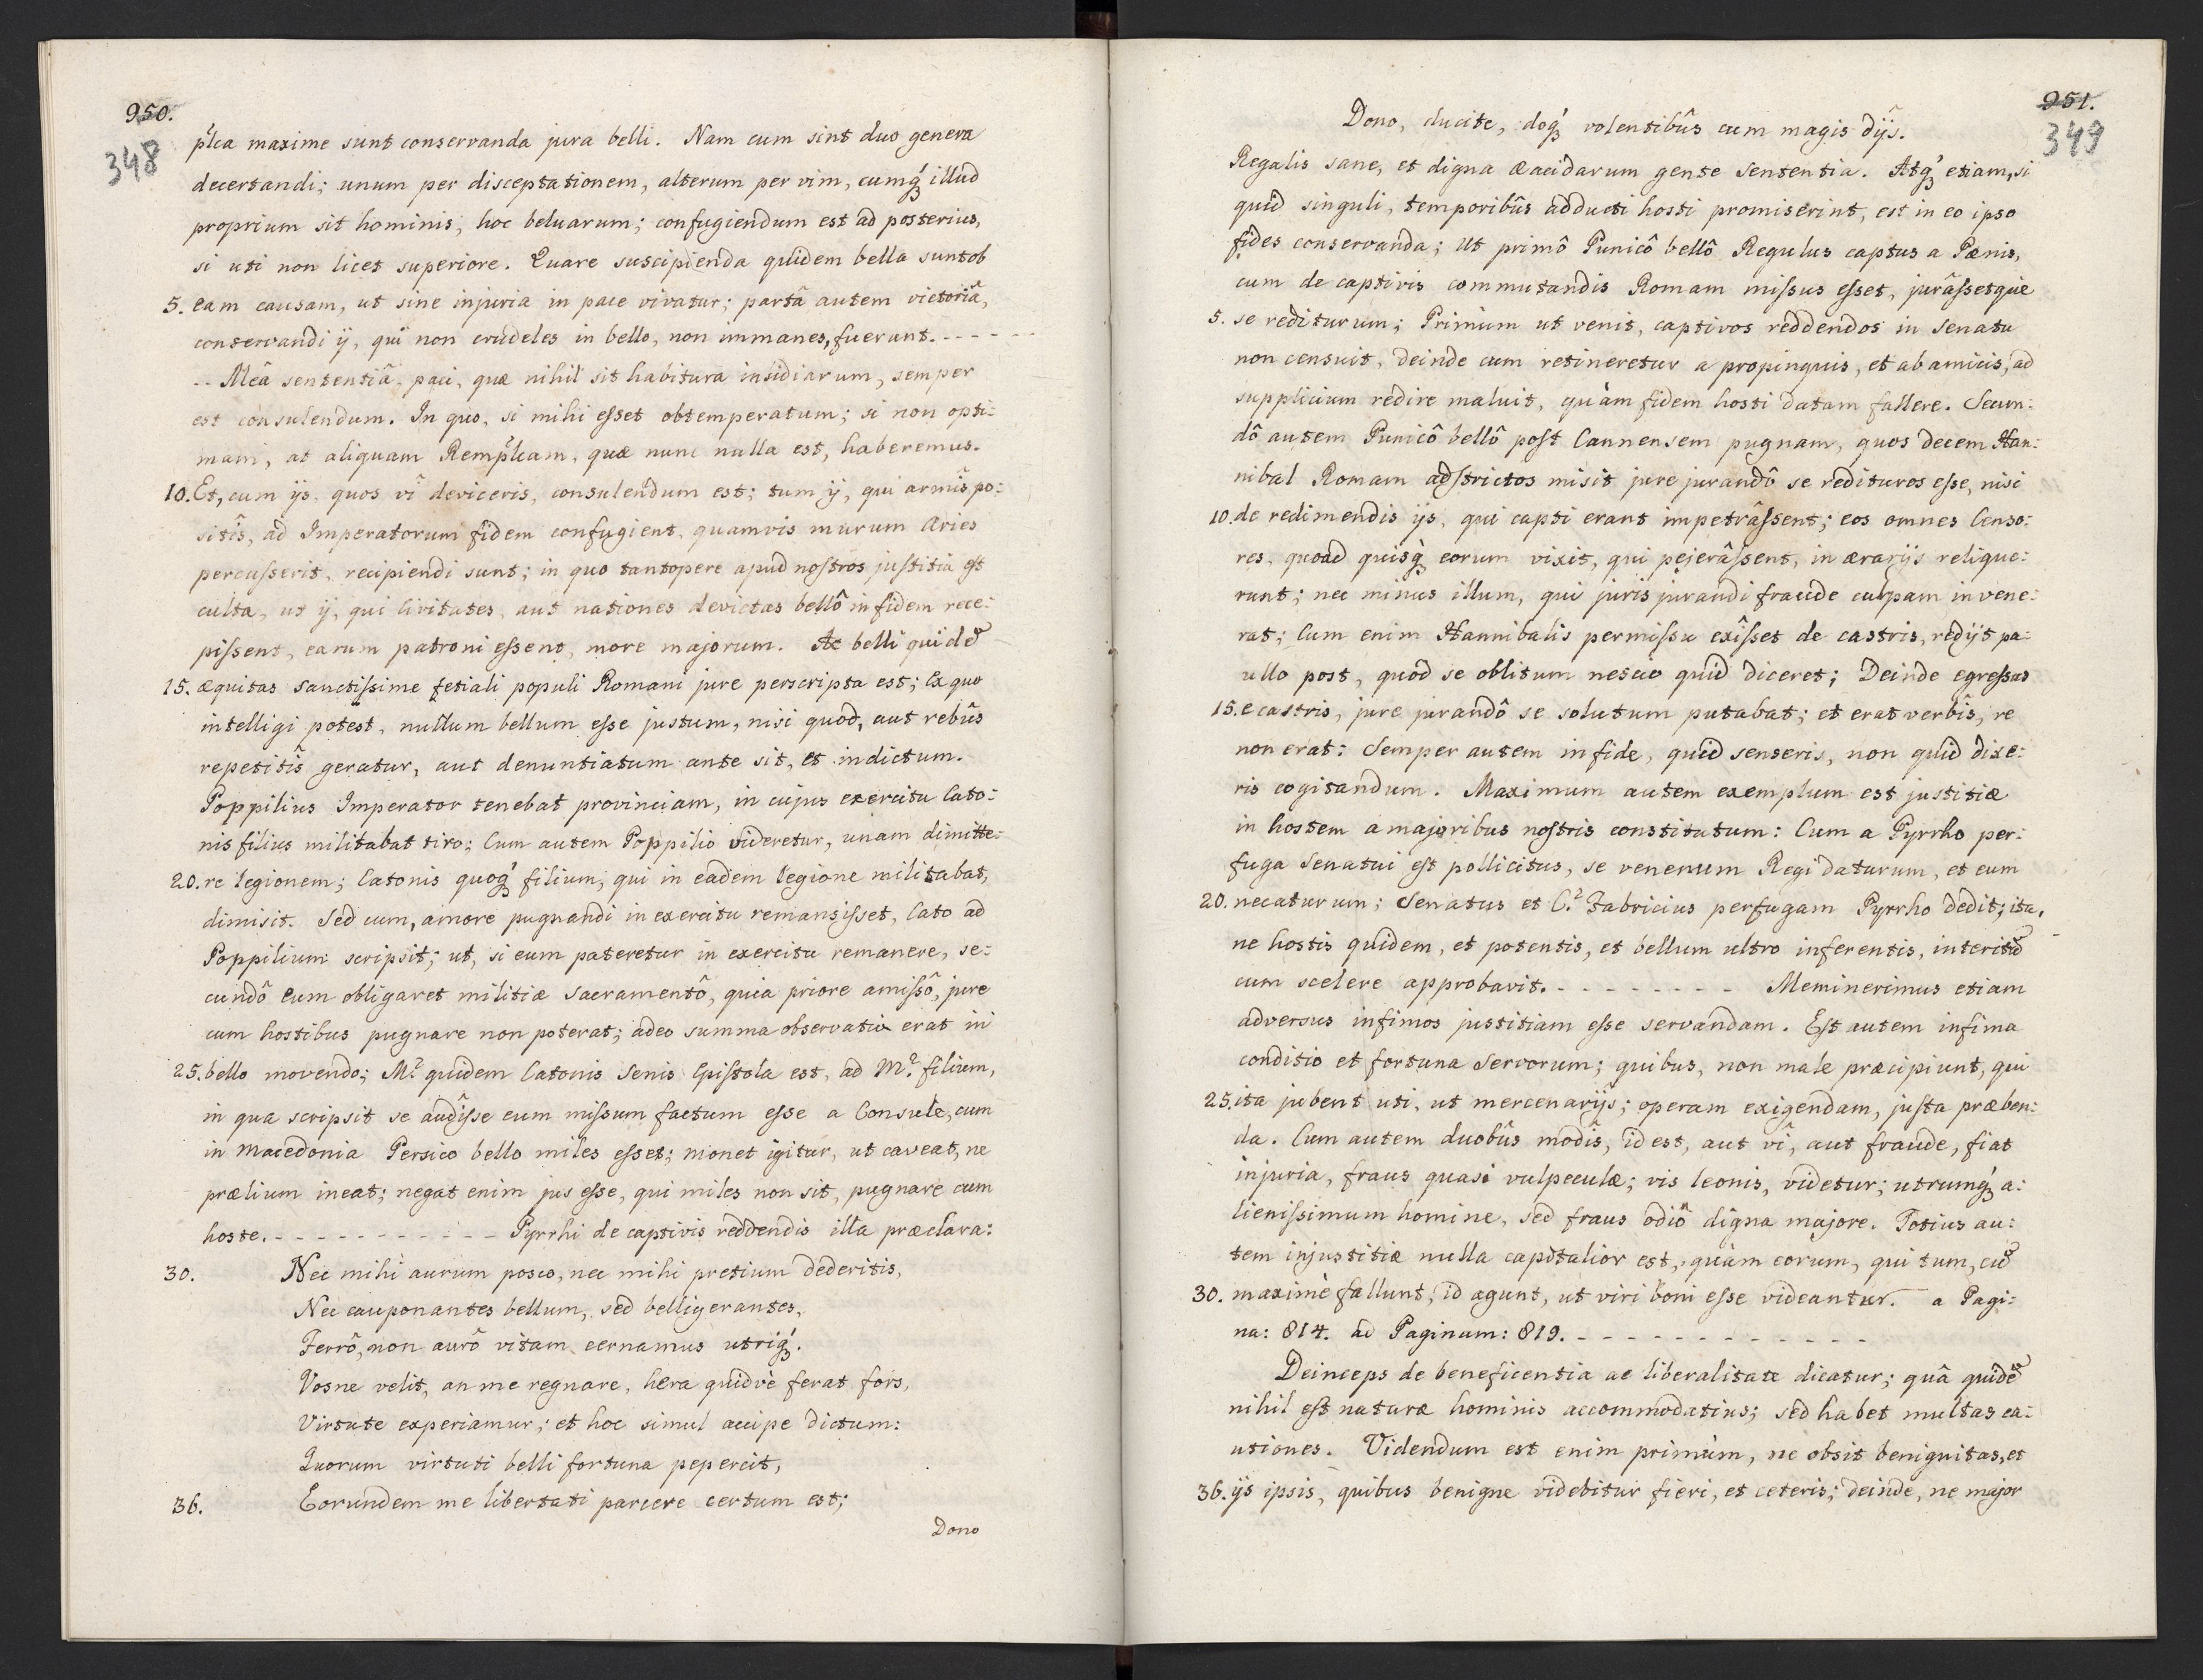 950.
348
plca maxime sunt conservanda jura belli. Nam cum sint duo genera
decertandi; unum per disceptationem, alterum per vim, cumq́ꝫ illud
proprium sit hominis, hoc beluarum; confugiendum est ad posterius,
si uti non licet superiore. Quare suscipienda quidem bella sunt ob
5. eam causam, ut sine injuria in pace vivatur; partâ autem victoriâ,
conservandi ÿ, qui non crudeles in bello, non immanes, fuerunt. - - - - -
-- Meâ sententiâ, paci, quæ nihil sit habitura insidiarum, semper
est consulendum. In quo, si mihi eſset obtemperatum; si non opti:
mam, at aliquam Remplcam, quæ nunc nulla est, haberemus.
10. Et, cum ijs, quos vî deviceris, consulendum est; tum ÿ, qui armîs po:
sitîs, ad Imperatorum fidem confugient, quamvis murum Aries
percuſserit, recipiendi sunt; in quo tantopere apud noſtros juſtitia eſt
culta, ut ÿ, qui Civitates, aut nationes devictas bellô in fidem rece:
piſsent, earum patroni eſsent, more majorum. Ac belli quidẽ
15. æquitas Sanctiſsime fetiali populi Romani jure perscripta est; Ex quo
intelligi potest, nullum bellum eſse justum, nisi quod, aut rebûs
repetitîs geratur, aut denuntiatum ante sit, et indictum.
Poppilius Imperator tenebat provinciam, in cujus exercitu Cato:
nis filius militabat tiro; Cum autem Poppilio videretur, unam dimitte:
20. re legionem; Catonis quoq́ꝫ filium, qui in eadem legione militabat,
dimisit. Sed cum, amore pugnandi in exercitu remansiſset, Cato ad
Poppilium scripsit; ut, si eum pateretur in exercitu remanere, se:
cundô eum obligaret militiæ Sacramentô, quia priore amiſsô, jure
cum hostibus pugnare non poterat; adeo summa observatio erat in
25. bello movendo; M? quidem Catonis Senis Epiſtola est, ad M? filium,
in qua scripsit se audîſse eum miſsum factum eſse a Consule, cum
in Macedonia Persico bello miles eſset; monet igitur, ut caveat, ne
prælium ineat; negat enim jus eſse, qui miles non sit, pugnare cum
hoste. - - - - - - - - - - - Pyrrhi de captivis reddendis illa præclara:
30. Nec mihi aurum posco, nec mihi pretium dederitis,
Nec cauponantes bellum, sed belligerantes,
Ferrô, non aurô vitam cernamus utriq́ꝫ.
Vosne velit, an me regnare, hera quidvè ferat fors,
Virtute experiamur; et hoc simul accipe dictum:
Quorum virtuti belli fortuna pepercit,
36. Eorundem me libertati parcere certum est;
Dono
951.
349
Dono, ducite, doq́ꝫ volentibûs cum magis dijs.
Regalis sane, et digna Æacidarum gente Sententia. Atq́ꝫ etiam, si
quid singuli, temporibûs adducti hosti promiserint, est in eo ipso
fides conservanda; Ut primô Punicô bellô Regulus captus a Pænis,
cum de captivis commutandis Romam miſsus eſset, jurâſsetque
5. se rediturum; Primùm ut venit, captivos reddendos in Senatu
non censuit, deinde cum retineretur a propinquis, et ab amicis, ad
supplicium redire maluit, quàm fidem hosti datam fallere. Secun:
dô autem Punicô bellô poſt Cannensem pugnam, quos decem Han:
nibal Romam adſtrictos misit jure jurandô se redituros eſse, nisi
10. de redimendis ijs, qui capti erant impetrâſsent; eos omnes Censo:
res, quoad quisq́ꝫ eorum vixit, qui pejerâſsent, in ærarijs relique:
runt; nec minus illum, qui juris jurandi fraude culpam invene:
rat; Cum enim Hannibalis permiſsu exîſset de castris, redijt pa:
ullo post, quòd se oblitum nescio quid diceret; Deinde egreſsus
15. e castris, jure jurandô se solutum putabat; et erat verbis, re
non erat: Semper autem in fide, quid senseris, non quid dixe:
ris cogitandum. Maximum autem exemplum est justitiæ
in hostem a majoribus noſtris constitutum: Cum a Pyrrho per:
fuga Senatui eſt pollicitus, se venenum Regi daturum, et eum
20. necaturum; Senatus et C? Fabricius perfugam Pyrrho dedit; ita,
ne hostis quidem, et potentis, et bellum ultro inferentis, interitũ
cum scelere approbavit. - - - - - - - - Meminerimus etiam
adversus infimos justitiam eſse servandam. Eſt autem infima
conditio et fortuna Servorum; quibus, non male præcipiunt, qui
25. ita jubent uti, ut mercenarijs; operam exigendam, juſta præben:
da. Cum autem duobûs modîs, id est, aut vî, aut fraude, fiat
injuria, fraus quasi vulpeculæ; vis leonis, videtur; utrumq́ꝫ a:
lieniſsimum homine, sed fraus odiô digna majore. Totius au:
tem injustitiæ nulla capitalior est, quàm eorum, qui tum, cũ
30. maximè fallunt, id agunt, ut viri boni eſse videantur. a Pagi:
na: 814. ad Paginum: 819. - - - - - - - - - - - - -
Deinceps de beneficentia ac liberalitate dicatur; quâ quidẽ
nihil eſt naturæ hominis accommodatius; sed habet multas ca:
utiones. Videndum est enim primùm, ne obsit benignitas, et
36. ijs ipsis, quibus benigne videbitur fieri, et ceteris; deinde, ne major